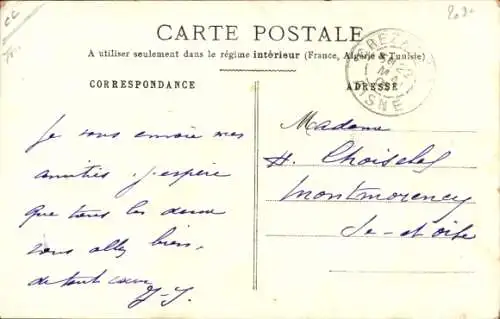 CARTE POSTALE
A utiliser seulement dans le régime intérieur (France, Algérie & Tunisie)
CORRESPONDANCE
ADRESSE
AISNE
Je vous envoie mes
amitiés. J'espère
que tous les deux
vous allez bien,
de tout cœur
Madame
H. Choiselat
Montmorency
Se-et-Oise